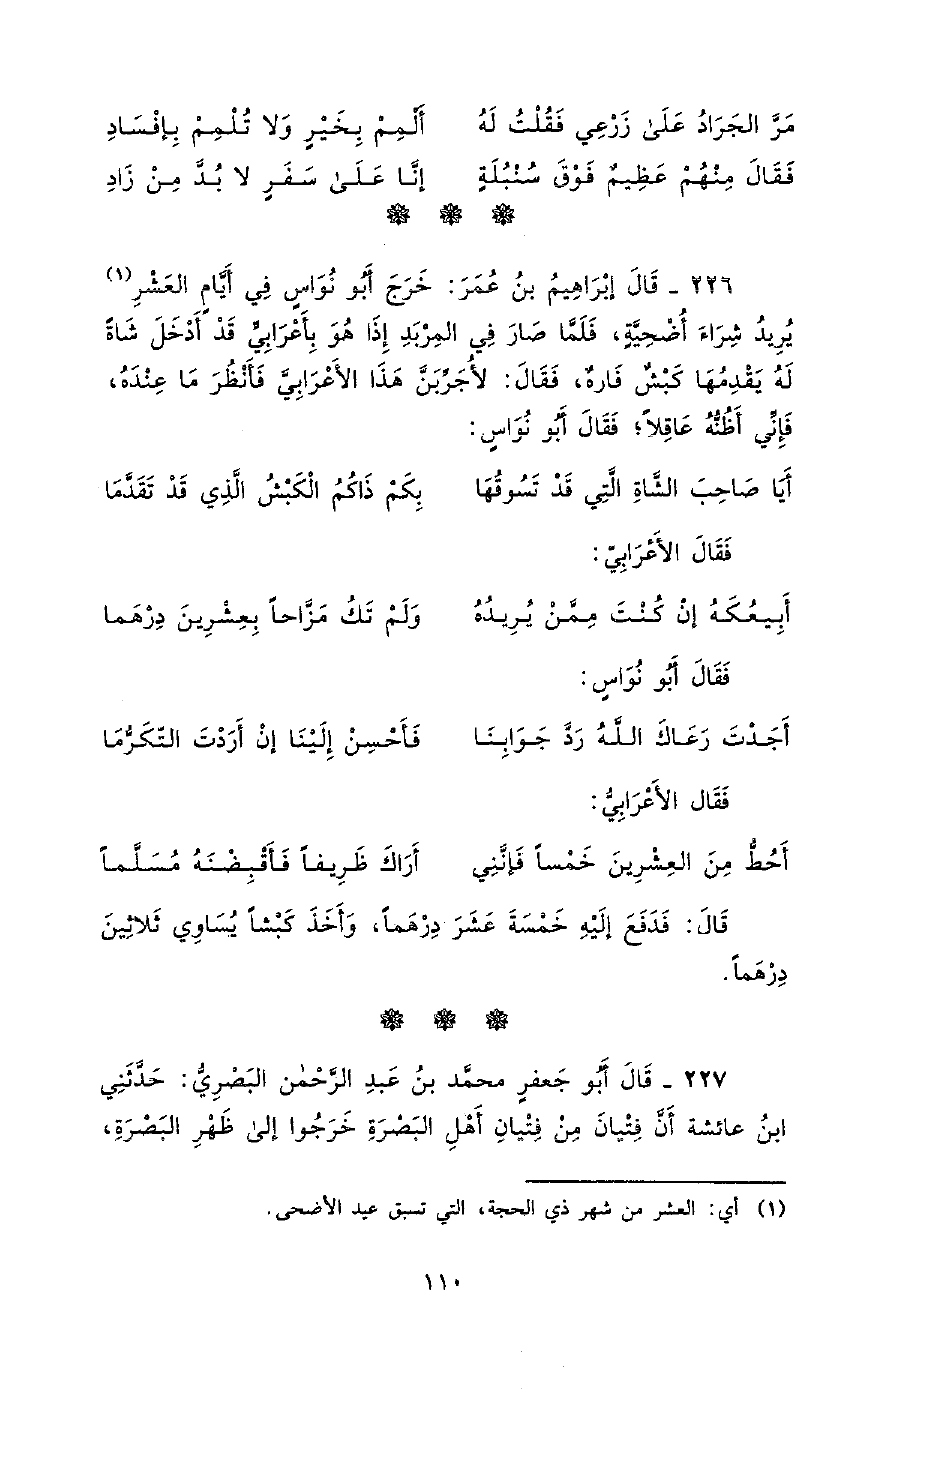 مَرَّ الجَرَادُ عَلَىٰ زَرْعِي فَقُلْتُ لَهُ أَلْمِمْ بِخَيْرٍ وَلا تُلْمِمْ بِإفْسَادِ
فَقَالَ مِنْهُمْ عَظِيمٌ فَوْقَ سُنْبُلَةٍ إنَّا عَلَىٰ سَفَرٍ لا بُدَّ مِنْ زَادِ
٢٢٦ ـ قَالَ إبْرَاهِيمُ بنُ عُمَرَ: خَرَجَ أَبُو نُوَاسٍ فِي أَيَّامِ العَشْرِ(١)
يُرِيدُ شِرَاءَ أُضْحِيَّةٍ، فَلَمَّا صَارَ فِي المِرْبَدِ إذَا هُوَ بِأَعْرَابِيٍّ قَدْ أَدْخَلَ شَاةً
لَهُ يَقْدِمُهَا كَبْشٌ فَارِهٌ، فَقَالَ: لأُجَرِّبَنَّ هَذَا الأَعْرَابِيَّ فَأَنْظُرَ مَا عِنْدَهُ،
فَإنِّي أَظُنُّهُ عَاقِلاً؛ فَقَالَ أَبُو نُوَاسٍ:
أَيَا صَاحِبَ الشَّاةِ الَّتِي قَدْ تَسُوقُهَا بِكَمْ ذَاكُمُ الْكَبْشُ الَّذِي قَدْ تَقَدَّمَا
فَقَالَ الأَعْرَابِيّ:
أَبِيعُكَهُ إنْ كُنْتَ مِمَّنْ يُرِيدُهُ وَلَمْ تَكُ مَزَّاحاً بِعِشْرِينَ دِرْهَما
فَقَالَ أَبُو نُوَاسٍ:
أَجَدْتَ رَعَاكَ اللَّهُ رَدَّ جَوَابِنَا فَأَحْسِنْ إلَيْنَا إنْ أَرَدْتَ التّكَرُّمَا
فَقَال الأَعْرَابِيُّ:
أَحُطُّ مِنَ العِشْرِينَ خَمْساً فَإنَّنِي أَرَاكَ ظَرِيفاً فَأَقْبِضْنَهُ مُسَلَّماً
قَالَ: فَدَفَعَ إلَيْهِ خَمْسَةَ عَشَرَ دِرْهَماً، وَأَخَذَ كَبْشاً يُسَاوِي ثَلاثِينَ
دِرْهَماً.
٢٢٧ ـ قَالَ أَبُو جَعفرٍ محمَّد بنُ عَبدِ الرَّحْمٰن البَصْرِيُّ: حَدَّثَنِي
ابنُ عائشة أَنَّ فِتْيَانَ مِنْ فِتْيَانِ أَهْلِ البَصْرَةِ خَرَجُوا إلىٰ ظَهْرِ البَصْرَةِ،
(١) أي: العشر من شهر ذي الحجة، التي تسبق عيد الأضحى.
١١٠